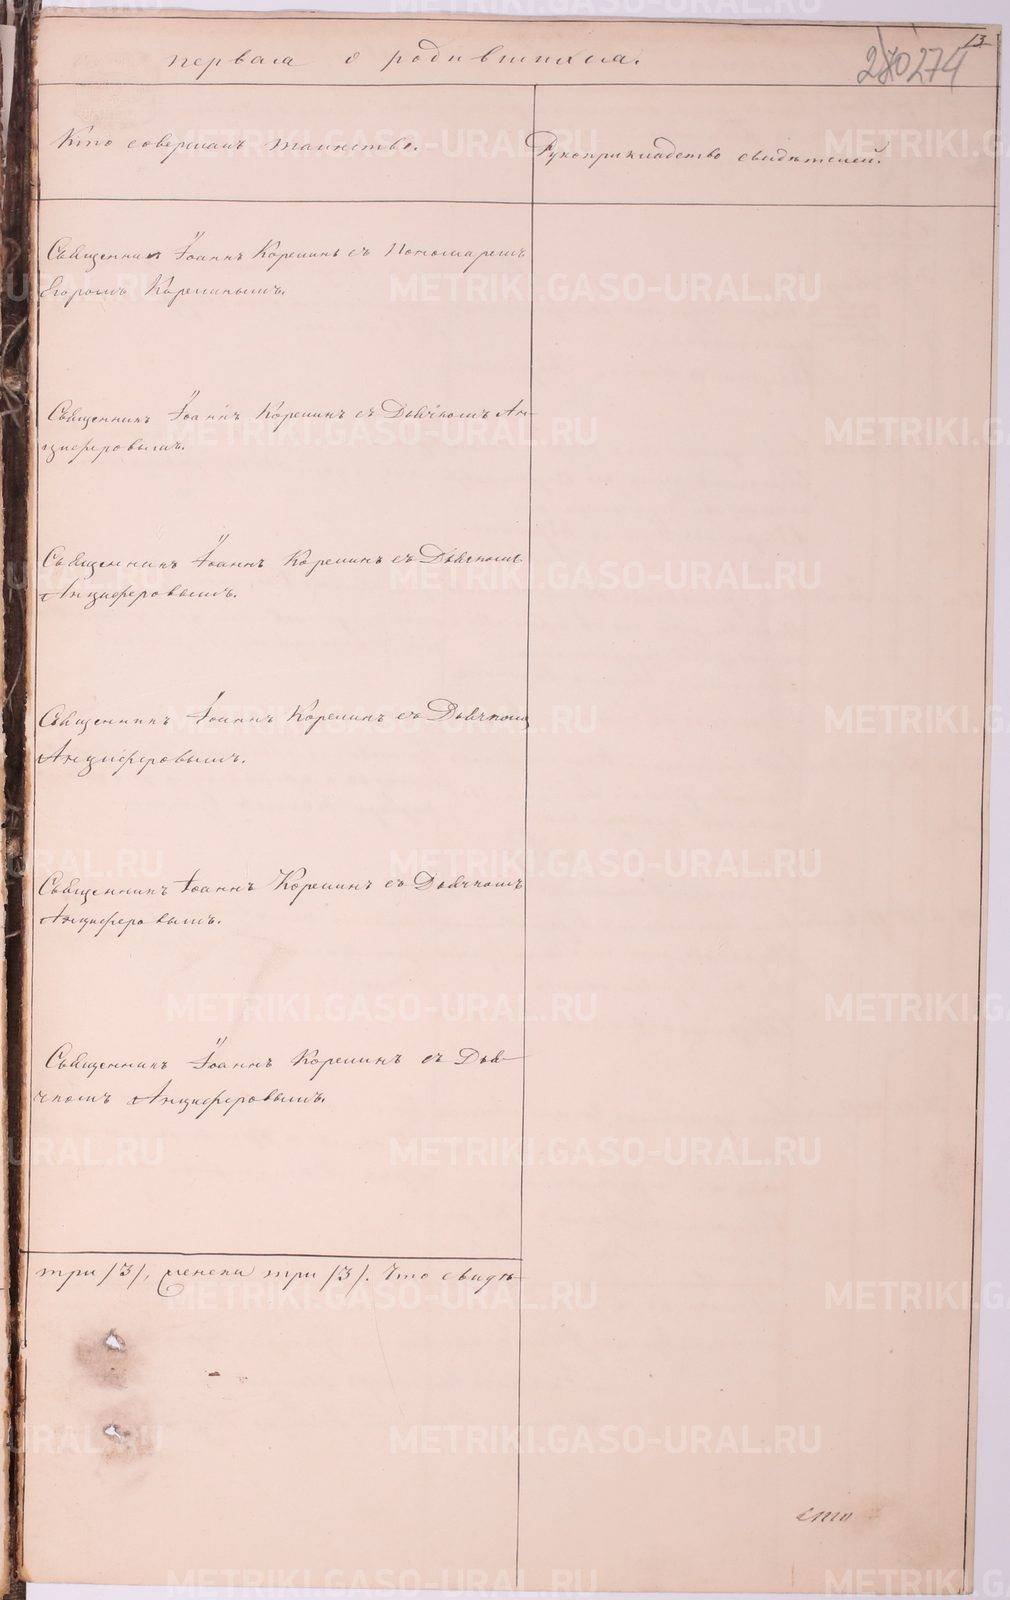 13
270 274
первая о родившихся.
Кто совершалъ таинство.
Рукоприкладство свидѣтелей.
Священникъ Іоаннъ Корелинъ съ Пономаремъ
Егоромъ Корелинымъ.
Священникъ Іоаннъ Корелинъ съ Дьячкомъ Ан-
циферовымъ.
Священникъ Іоаннъ Корелинъ съ Дьячкомъ
Анциферовымъ.
Священникъ Іоаннъ Корелинъ съ Дьячкомъ
Анциферовымъ.
Священникъ Іоаннъ Корелинъ съ Дьячкомъ
Анциферовымъ.
Священникъ Іоаннъ Корелинъ съ Дья-
чкомъ Анциферовымъ.
три /3/, женска три /3/. Что свидѣ-
METRIKI.GASO-URAL.RU